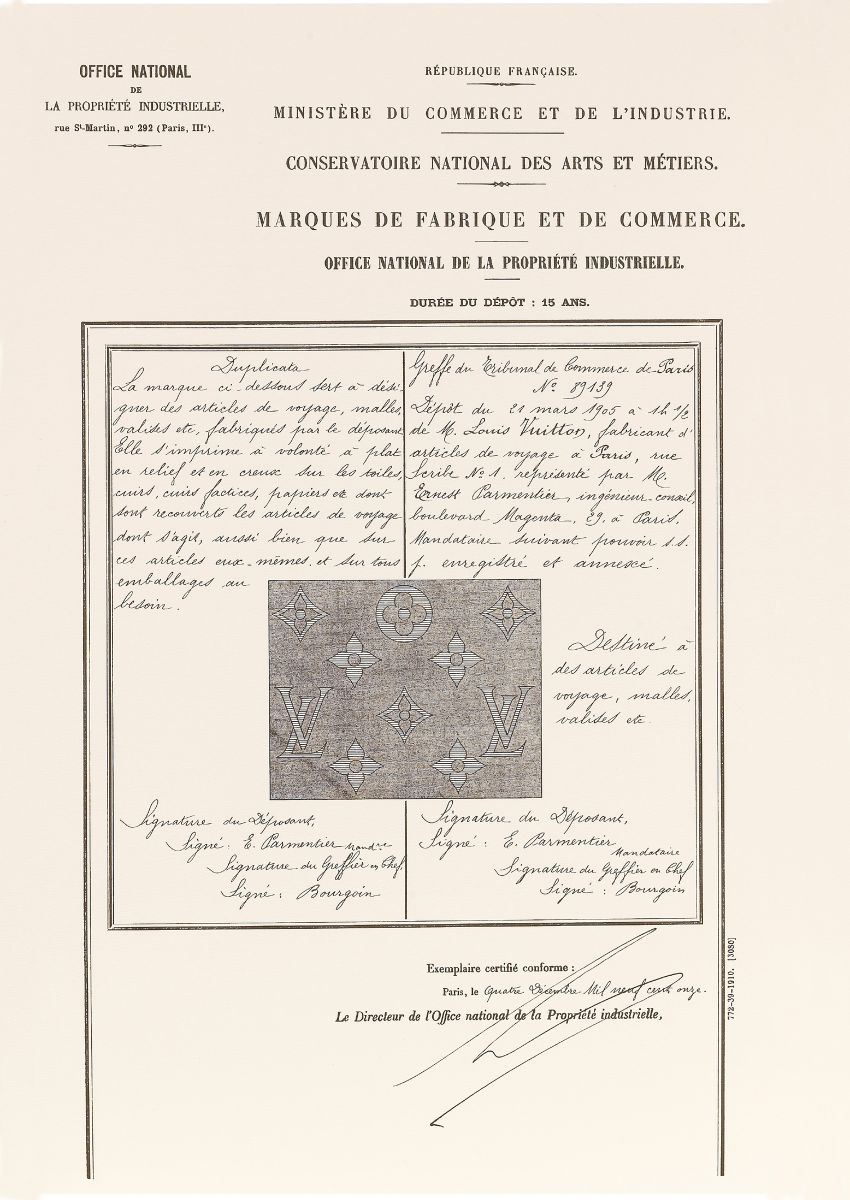 OFFICE NATIONAL
DE
LA PROPRIÉTÉ INDUSTRIELLE,
rue St-Martin, nº 292 (Paris, IIIe).
RÉPUBLIQUE FRANÇAISE.
MINISTÈRE DU COMMERCE ET DE L'INDUSTRIE.
CONSERVATOIRE NATIONAL DES ARTS ET MÉTIERS.
MARQUES DE FABRIQUE ET DE COMMERCE.
OFFICE NATIONAL DE LA PROPRIÉTÉ INDUSTRIELLE.
DURÉE DU DÉPÔT : 15 ANS.
Duplicata
La marque ci-dessous sert à dési-
gner des articles de voyage, malles,
valises etc, fabriqués par le déposant
Elle s'imprime à volonté à plat
en relief et en creux sur les toiles,
cuirs, cuirs factices, papiers etc dont
sont recouverts les articles de voyage
dont s'agit, aussi bien que sur
ces articles eux-mêmes et sur tous
emballages au
besoin.
Greffe du Tribunal de Commerce de Paris
No 89139
Dépôt du 21 mars 1905 à 1h 1/2
de M. Louis Vuitton, fabricant d'
articles de voyage à Paris, rue
Scribe No 1. représenté par M.
Ernest Parmentier, ingénieur conseil,
boulevard Magenta, 29. à Paris.
Mandataire suivant pouvoir s.s.
p. enregistré et annexé.
LV LV
Destiné à
des articles de
voyage, malles,
valises etc.
Signature du Déposant,
Signé : E. Parmentier Mandre
Signature du Greffier en Chef,
Signé : Bourgoin
Signature du Déposant,
Signé : E. Parmentier
Mandataire
Signature du Greffier en Chef
Signé : Bourgoin
Exemplaire certifié conforme :
Paris, le Quatre Décembre Mil neuf cent onze.
Le Directeur de l'Office national de la Propriété industrielle,
772-39-1910. [3080]